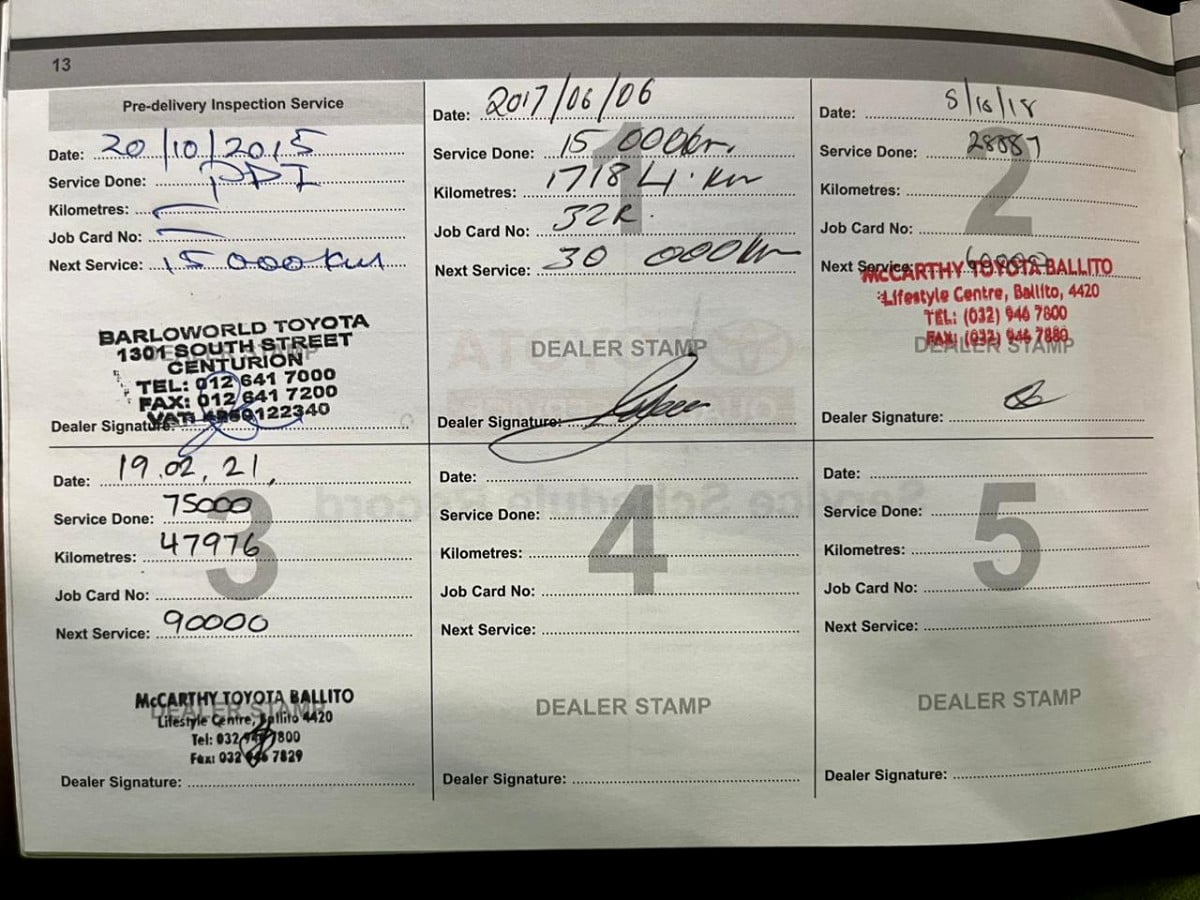 13
Pre-delivery Inspection Service
Date: 20/10/2015
Service Done: PDI
Kilometres:
Job Card No:
Next Service: 15 000km
BARLOWORLD TOYOTA
1301 SOUTH STREET
CENTURION
TEL: 012 641 7000
FAX: 012 641 7200
VAT: 122340
Dealer Signature:
1
Date: 2017/06/06
Service Done: 15 000km
Kilometres: 17184.km
Job Card No: 32R.
Next Service: 30 000km
DEALER STAMP
Dealer Signature:
2
Date: /18
Service Done: 28887
Kilometres:
Job Card No:
Next Service: 60000
McCARTHY TOYOTA BALLITO
Lifestyle Centre, Ballito, 4420
TEL: (032) 946 7800
FAX: (032) 946 7880
DEALER STAMP
Dealer Signature:
3
Date: 19.02, 21,
Service Done: 75000
Kilometres: 47976
Job Card No:
Next Service: 90000
DEALER STAMP
McCARTHY TOYOTA BALLITO
Lifestyle Centre, Ballito 4420
Tel: 032 7800
Fax: 032 946 7829
Dealer Signature:
4
Date:
Service Done:
Kilometres:
Job Card No:
Next Service:
DEALER STAMP
Dealer Signature:
5
Date:
Service Done:
Kilometres:
Job Card No:
Next Service:
DEALER STAMP
Dealer Signature: